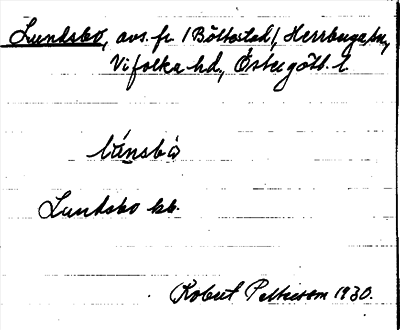 Lundsbo, avs. fr. /Boltostad/, Herrberga sn,
Vifolka hd, Östergötl. l.
lúnsbo
Lundsbo kb.
Robert Petterson 1930.